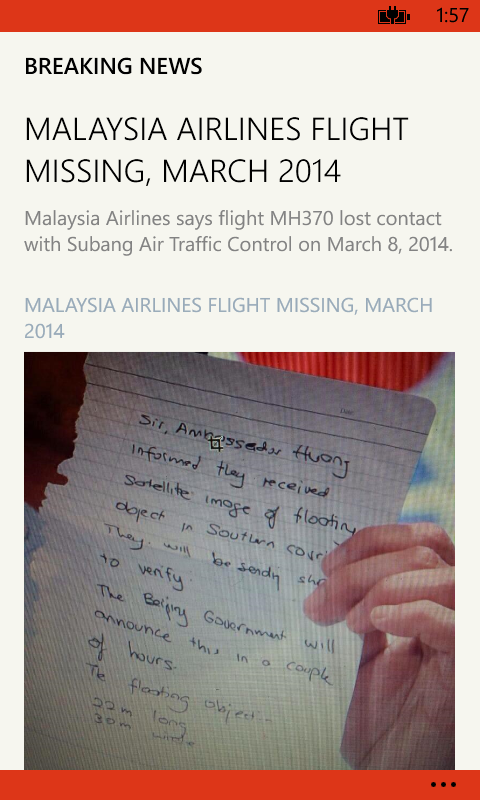 1:57
BREAKING NEWS
MALAYSIA AIRLINES FLIGHT
MISSING, MARCH 2014
Malaysia Airlines says flight MH370 lost contact
with Subang Air Traffic Control on March 8, 2014.
MALAYSIA AIRLINES FLIGHT MISSING, MARCH
2014
Sir, Ambassador Huang
informed they received
Satellite image of floating
object in Southern
They will be sending
to verify.
The Beijing Government will
announce this in a couple
of hours.
The floating object--
22m long
30m